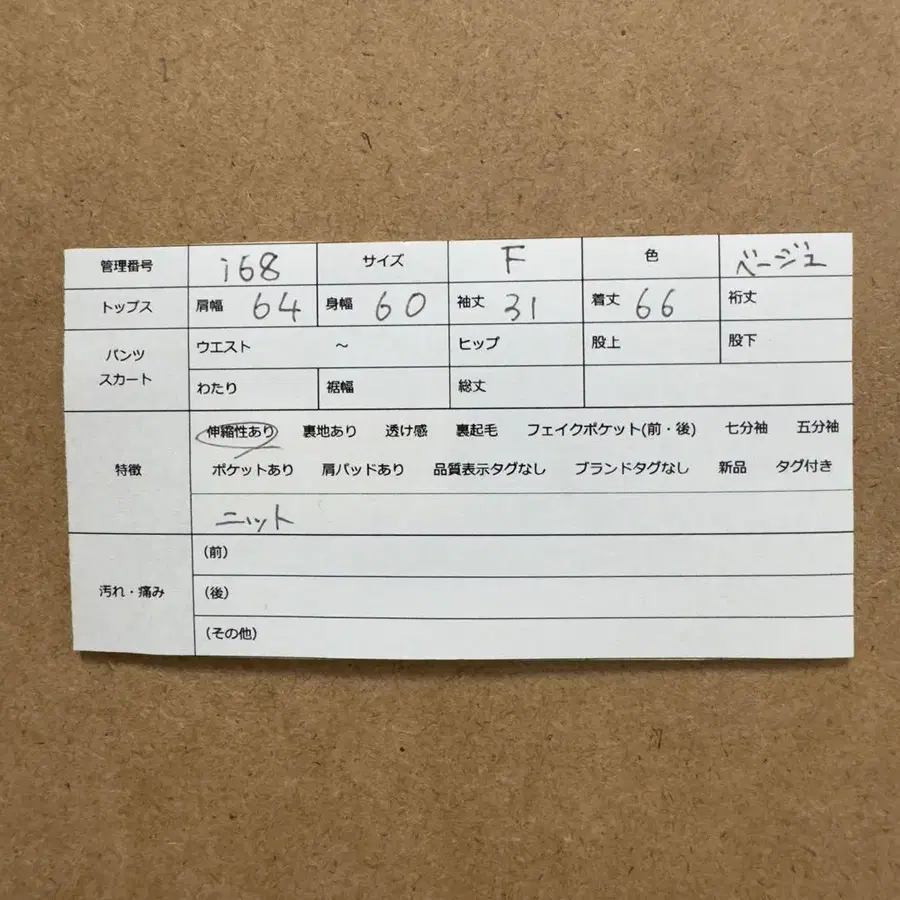 管理番号 i68 サイズ F 色 ベージュ
トップス 肩幅 64 身幅 60 袖丈 31 着丈 66 裄丈
パンツ
スカート
ウエスト ～ ヒップ 股上 股下
わたり 裾幅 総丈
特徴
伸縮性あり 裏地あり 透け感 裏起毛 フェイクポケット(前・後) 七分袖 五分袖
ポケットあり 肩パッドあり 品質表示タグなし ブランドタグなし 新品 タグ付き
ニット
汚れ・痛み
(前)
(後)
(その他)